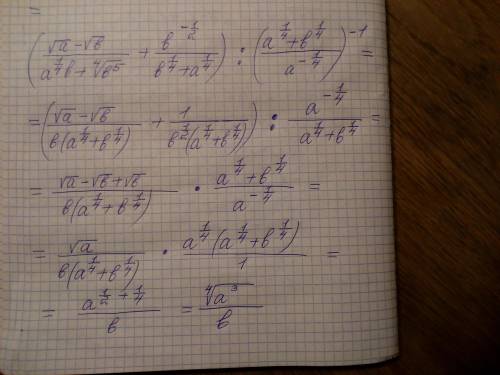 =
((√a − √b)/(a^(1/4)b + ⁴√(b⁵)) + b^(-1/2)/(b^(1/4) + a^(1/4))) : ((a^(1/4) + b^(1/4))/a^(-1/4))^(-1) =
= ((√a − √b)/(b(a^(1/4) + b^(1/4))) + 1/(b^(1/2)(a^(1/4) + b^(1/4)))) : a^(-1/4)/(a^(1/4) + b^(1/4)) =
= (√a − √b + √b)/(b(a^(1/4) + b^(1/4))) · (a^(1/4) + b^(1/4))/a^(-1/4) =
= √a/(b(a^(1/4) + b^(1/4))) · a^(1/4)(a^(1/4) + b^(1/4))/1 =
= a^(1/2 + 1/4)/b = ⁴√(a³)/b